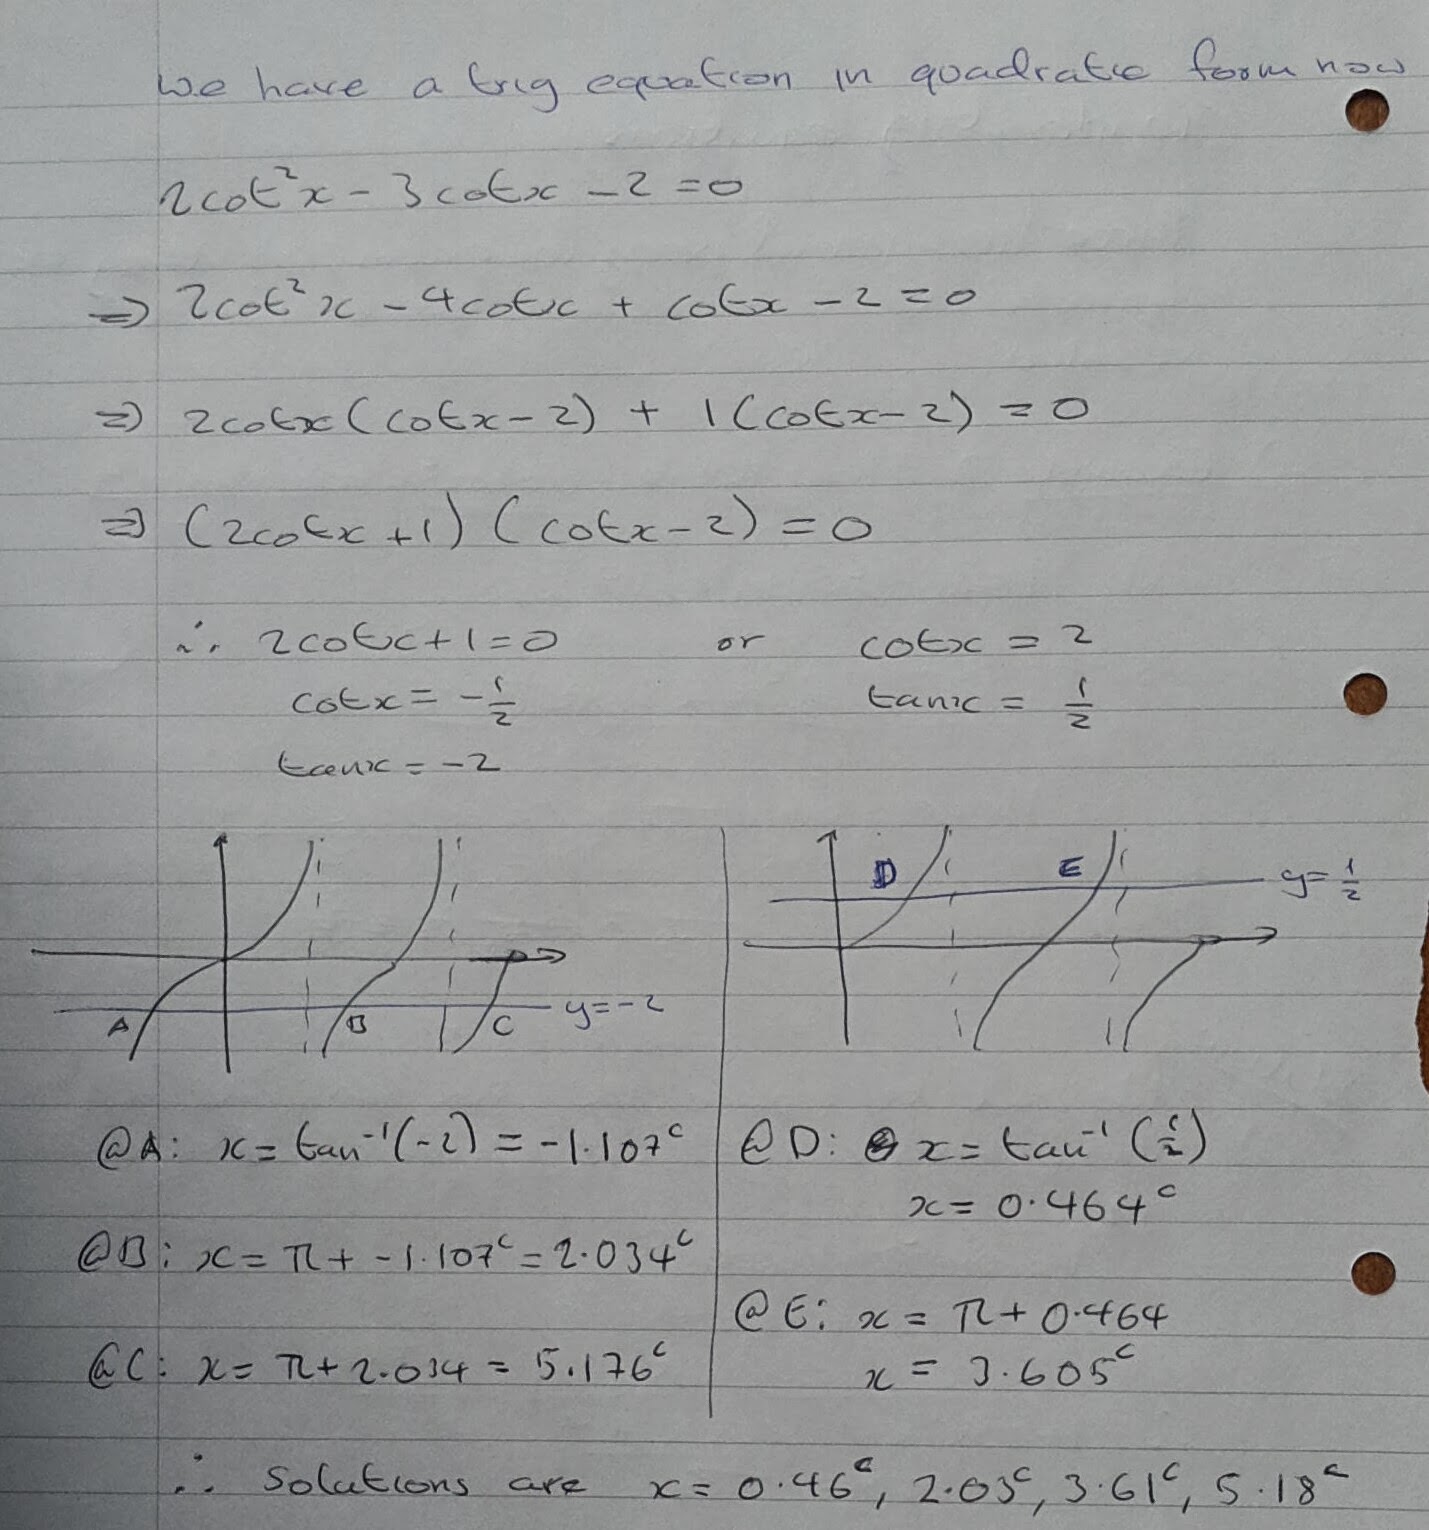 We have a trig equation in quadratic form now
2cot²x - 3cotx - 2 = 0
⇒ 2cot²x - 4cotx + cotx - 2 = 0
⇒ 2cotx(cotx - 2) + 1(cotx - 2) = 0
⇒ (2cotx + 1)(cotx - 2) = 0
∴ 2cotx + 1 = 0 or cotx = 2
cotx = -1/2 tanx = 1/2
tanx = -2
D E y = 1/2
A B C y = -2
@A: x = tan⁻¹(-2) = -1.107ᶜ
@B: x = π + -1.107ᶜ = 2.034ᶜ
@C: x = π + 2.034 = 5.176ᶜ
@D: x = tan⁻¹(1/2)
x = 0.464ᶜ
@E: x = π + 0.464
x = 3.605ᶜ
∴ solutions are x = 0.46ᶜ, 2.03ᶜ, 3.61ᶜ, 5.18ᶜ